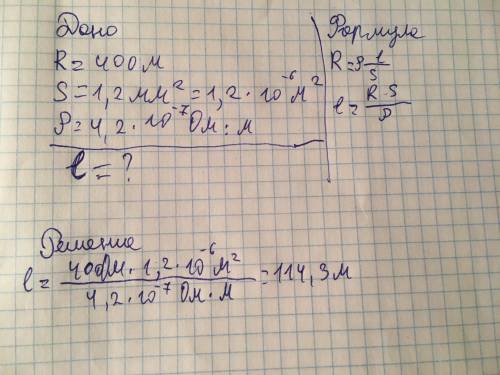 Дано
R = 40 Ом
S = 1,2 мм² = 1,2 · 10⁻⁶ м²
ρ = 4,2 · 10⁻⁷ Ом · м
l = ?
Формула
R = ρ l/S
l = R S/ρ
Решение
l = 40 Ом · 1,2 · 10⁻⁶ м² / 4,2 · 10⁻⁷ Ом · м = 114,3 м